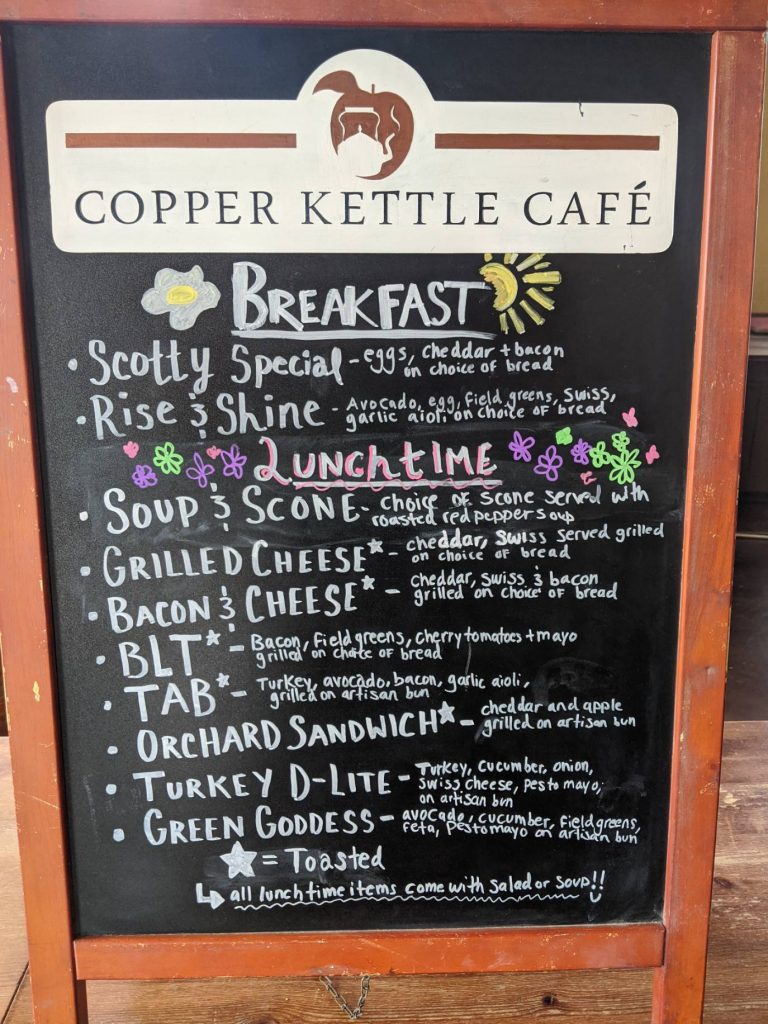 COPPER KETTLE CAFÉ
BREAKFAST
• Scotty Special - eggs, cheddar + bacon
on choice of bread
• Rise & Shine - Avocado, egg, field greens, Swiss,
garlic aioli on choice of bread
LUNCHTIME
• SOUP & SCONE - choice of scone served with
roasted red pepper soup
• GRILLED CHEESE* - cheddar, swiss served grilled
on choice of bread
• BACON & CHEESE* - cheddar, swiss & bacon
grilled on choice of bread
• BLT* - Bacon, field greens, cherry tomatoes + mayo
grilled on choice of bread
• TAB* - Turkey, avocado, bacon, garlic aioli,
grilled on artisan bun
• ORCHARD SANDWICH* - cheddar and apple
grilled on artisan bun
• TURKEY D-LITE - Turkey, cucumber, onion,
swiss cheese, pesto mayo,
on artisan bun
• GREEN GODDESS - avocado, cucumber, field greens,
feta, pesto mayo on artisan bun
★ = Toasted
↳ all lunchtime items come with salad or soup!!